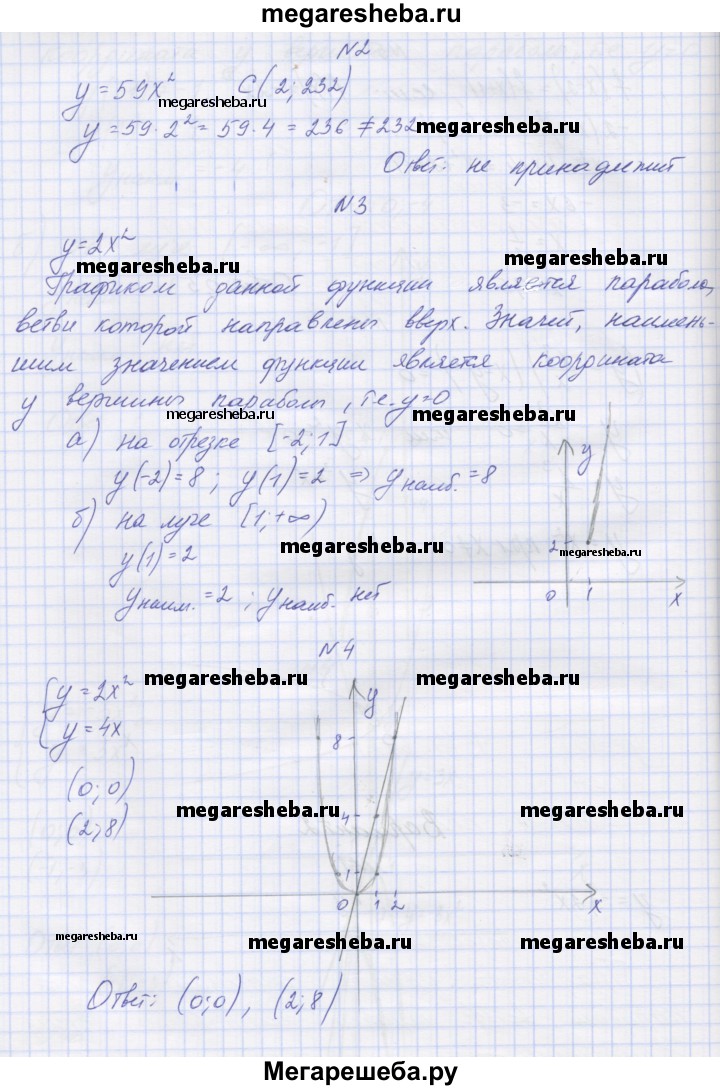 megaresheba.ru
N2
y = 59x² C(2; 232)
megaresheba.ru
y = 59·2² = 59·4 = 236 ≠ 232
megaresheba.ru
Ответ: не принадлежит
N3
y = 2x²
megaresheba.ru
megaresheba.ru
Графиком данной функции является парабола,
ветви которой направлены вверх. Значит, наимень-
шим значением функции является координата
y вершины параболы, т.е. y=0
megaresheba.ru
megaresheba.ru
а) на отрезке [-2; 1]
y(-2)=8; y(1)=2 ⇒ yнаиб. =8
б) на луче [1; +∞)
megaresheba.ru
y(1)=2
yнаим. =2; yнаиб. нет
y
2
megaresheba.ru
0 1 x
N4
{ y = 2x²
megaresheba.ru
megaresheba.ru
y = 4x
y
8
(0; 0)
4
megaresheba.ru
megaresheba.ru
(2; 8)
1
0 1 2 x
megaresheba.ru
megaresheba.ru
megaresheba.ru
Ответ: (0;0), (2; 8)
Мегарешеба.ру